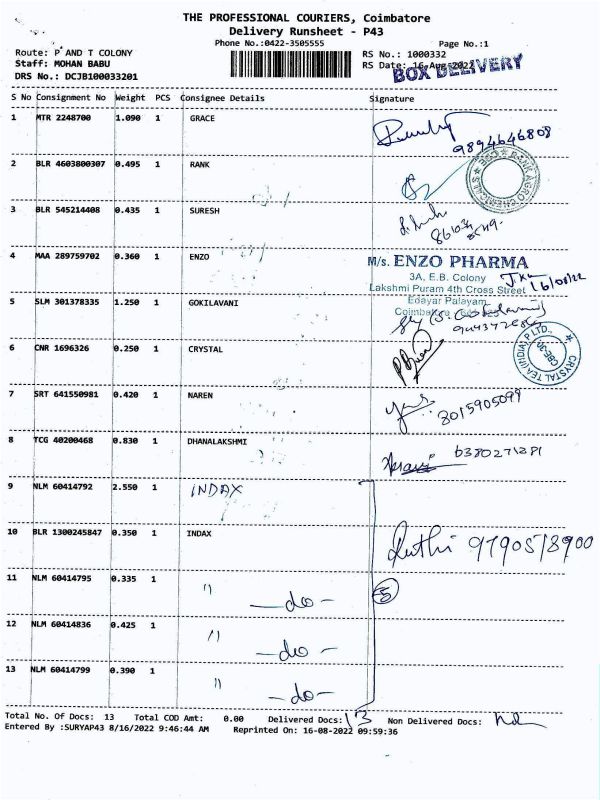 THE PROFESSIONAL COURIERS, Coimbatore
Delivery Runsheet - P43
Phone No.:0422-3505555 Page No.:1
Route: P AND T COLONY RS No.: 1000332
Staff: MOHAN BABU RS Date: 16-Aug-2022
BOX DELIVERY
DRS No.: DCJB100033201
S No Consignment No Weight PCS Consignee Details Signature
1 MTR 2248700 1.090 1 GRACE
9894646808
2 BLR 4603800307 0.495 1 RANK
RANK AGRO CHEMICALS
3 BLR 545214408 0.435 1 SURESH
4 MAA 289759702 0.360 1 ENZO
M/s. ENZO PHARMA
3A, E.B. Colony
Lakshmi Puram 4th Cross Street 16/08/22
Edayar Palayam,
5 SLM 301378335 1.250 1 GOKILAVANI
6 CNR 1696326 0.250 1 CRYSTAL
CRYSTAL TEA (INDIA) P LTD.,
7 SRT 641550981 0.420 1 NAREN
8015905099
8 TCG 40200468 0.830 1 DHANALAKSHMI
9 NLM 60414792 2.550 1 INDAX
10 BLR 1300245847 0.350 1 INDAX
11 NLM 60414795 0.335 1 " —do—
5
12 NLM 60414836 0.425 1 " —do—
13 NLM 60414799 0.390 1 " —do—
Total No. Of Docs: 13 Total COD Amt: 0.00 Delivered Docs: 13 Non Delivered Docs:
Entered By :SURYAP43 8/16/2022 9:46:44 AM Reprinted On: 16-08-2022 09:59:36